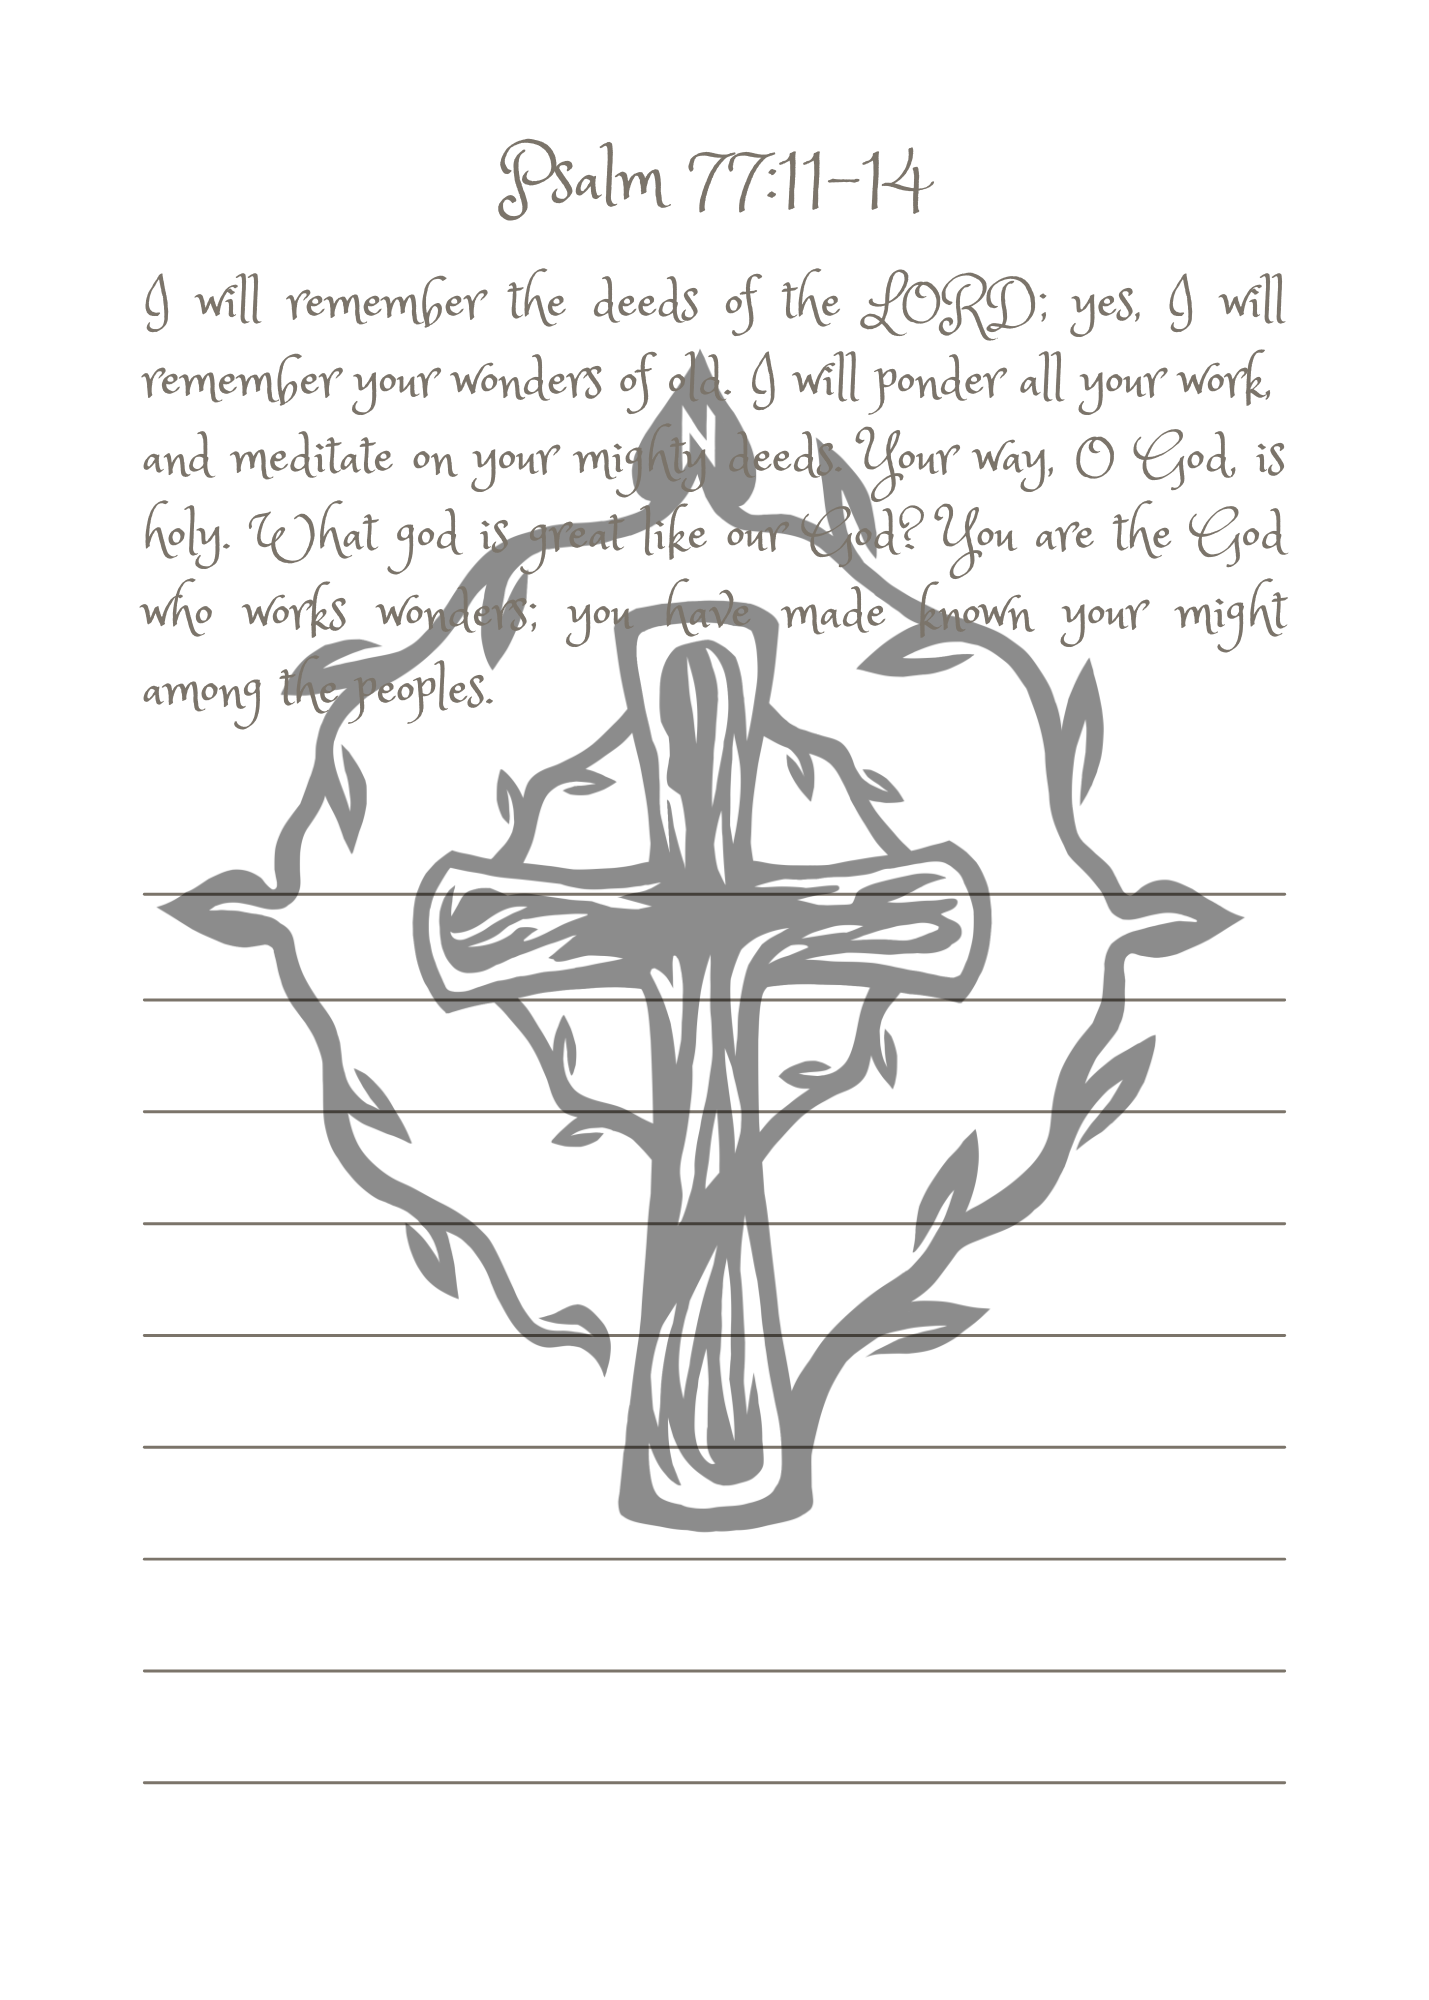 Psalm 77:11–14
I will remember the deeds of the LORD; yes, I will
remember your wonders of old. I will ponder all your work,
N
and meditate on your mighty deeds. Your way, O God, is
holy. What god is great like our God? You are the God
who works wonders; you have made known your might
among the peoples.